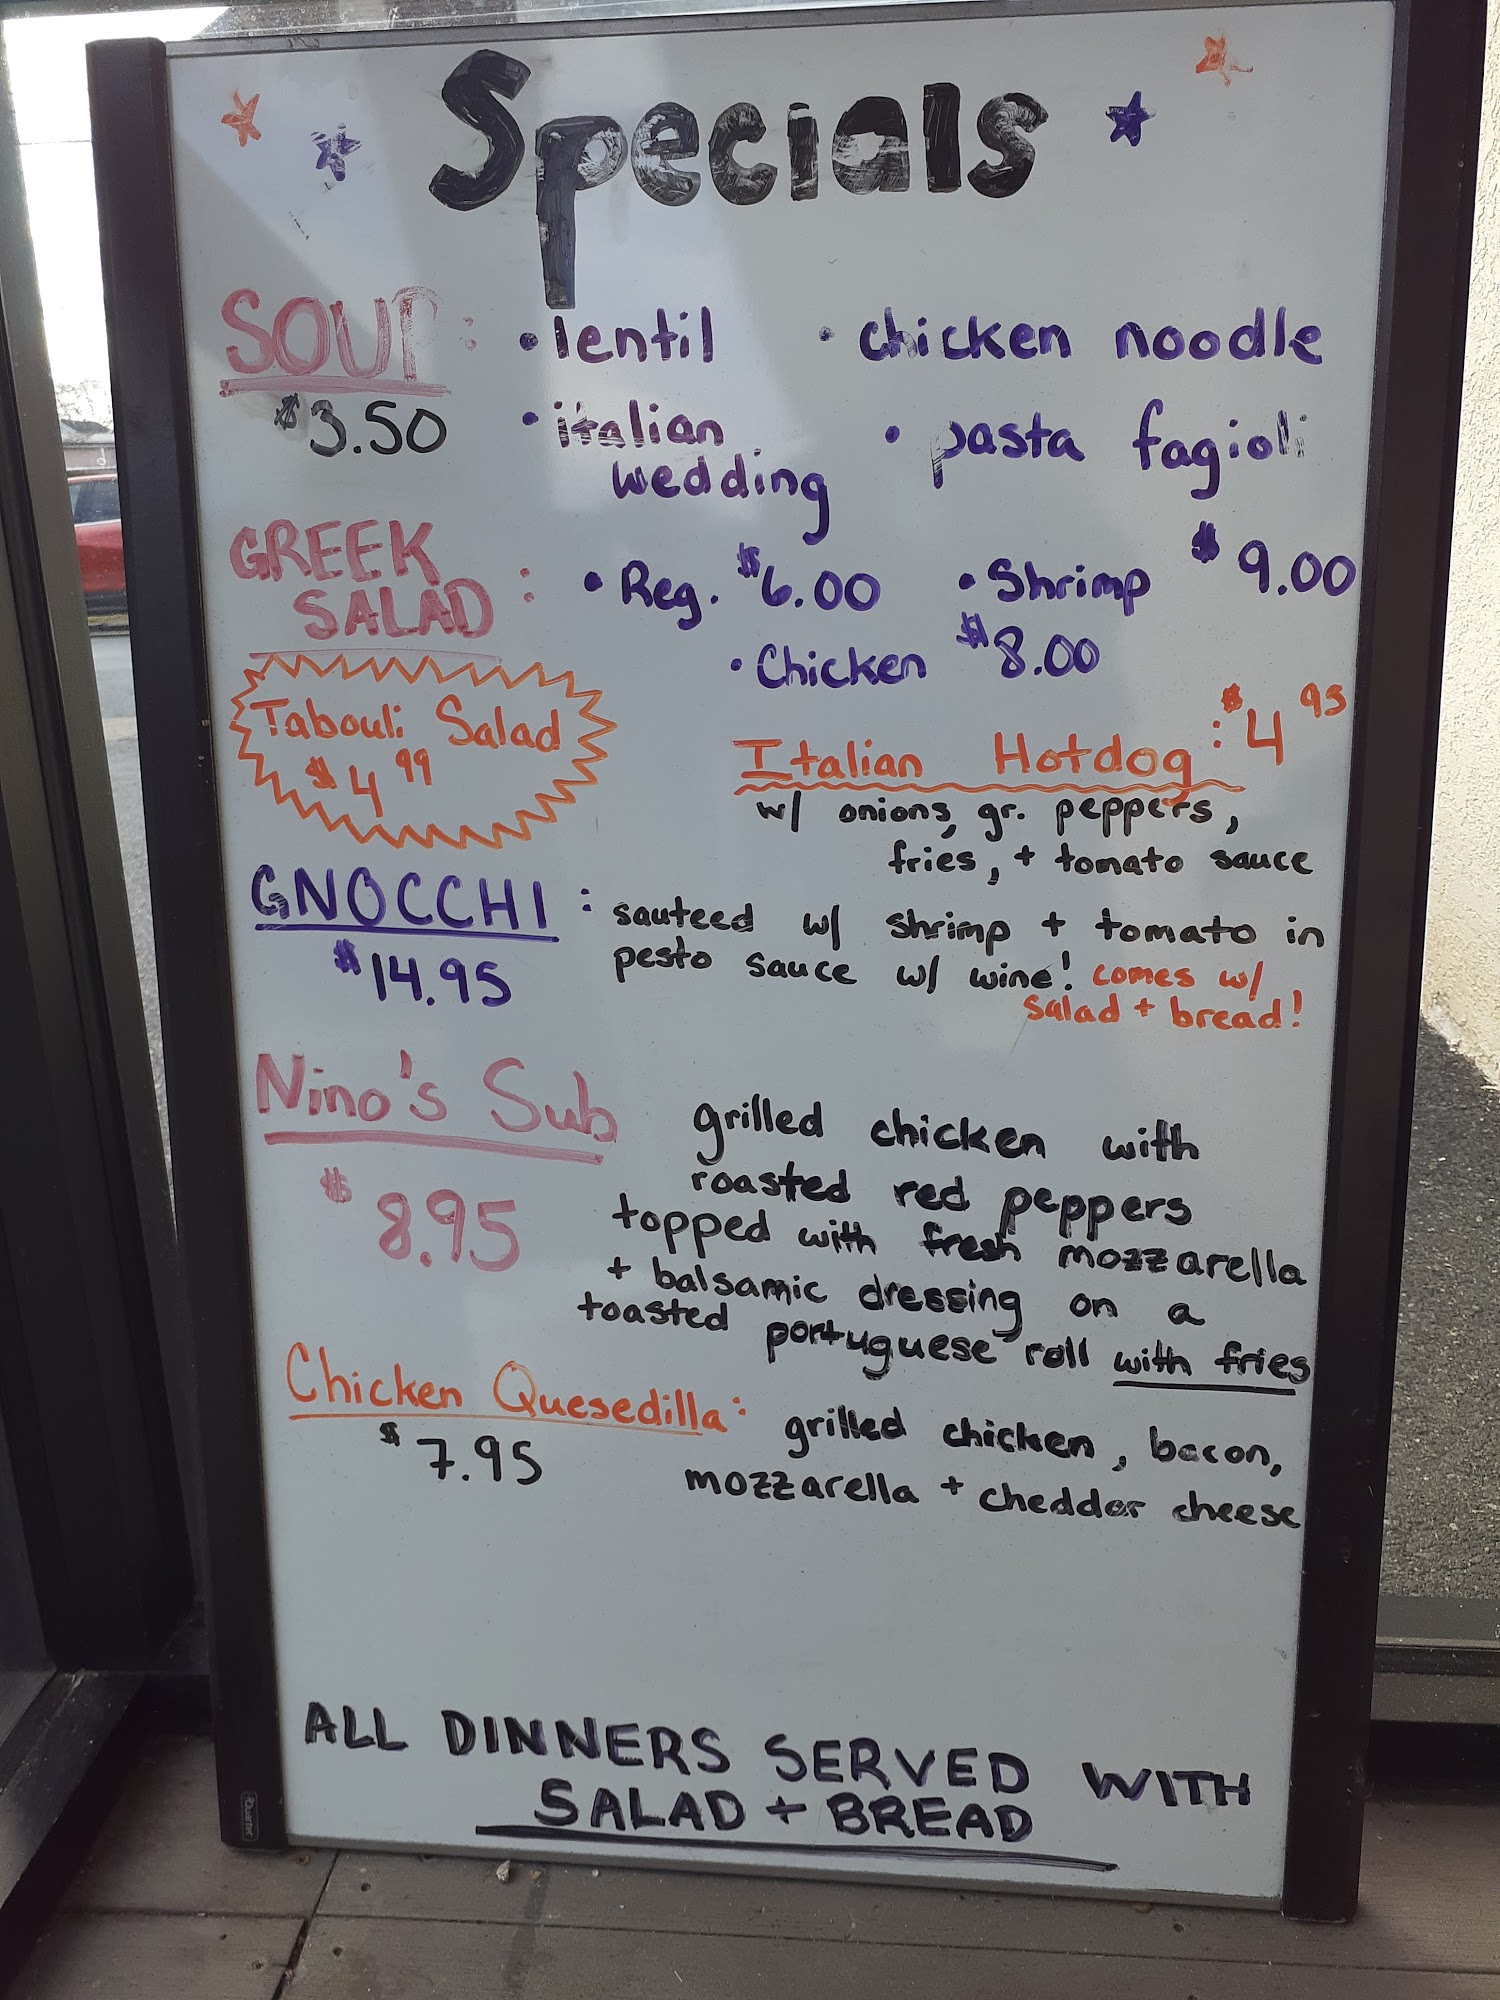 Specials
SOUP: • lentil • chicken noodle
$3.50 • italian wedding • pasta fagioli
GREEK SALAD: • Reg. $6.00 • Shrimp $9.00
• Chicken $8.00
Tabouli Salad
$4.99
Italian Hotdog: $4.95
w/ onions, gr. peppers,
fries, + tomato sauce
GNOCCHI: sauteed w/ shrimp + tomato in
$14.95 pesto sauce w/ wine! comes w/
salad + bread!
Nino's Sub grilled chicken with
$8.95 roasted red peppers
topped with fresh mozzarella
+ balsamic dressing on a
toasted portuguese roll with fries
Chicken Quesedilla: grilled chicken, bacon,
$7.95 mozzarella + cheddar cheese
ALL DINNERS SERVED WITH
SALAD + BREAD
Quartet